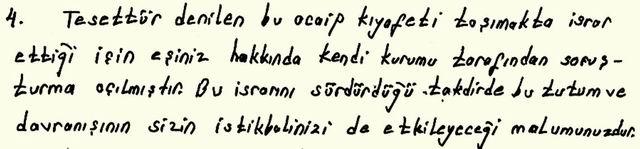 4. Tesettür denilen bu acaip kıyafeti taşımakta israr
ettiği için eşiniz hakkında kendi kurumu tarafından soruş-
turma açılmıştır. Bu israrını sürdürdüğü takdirde bu tutum ve
davranışının sizin istikbalinizi de etkileyeceği malumunuzdur.